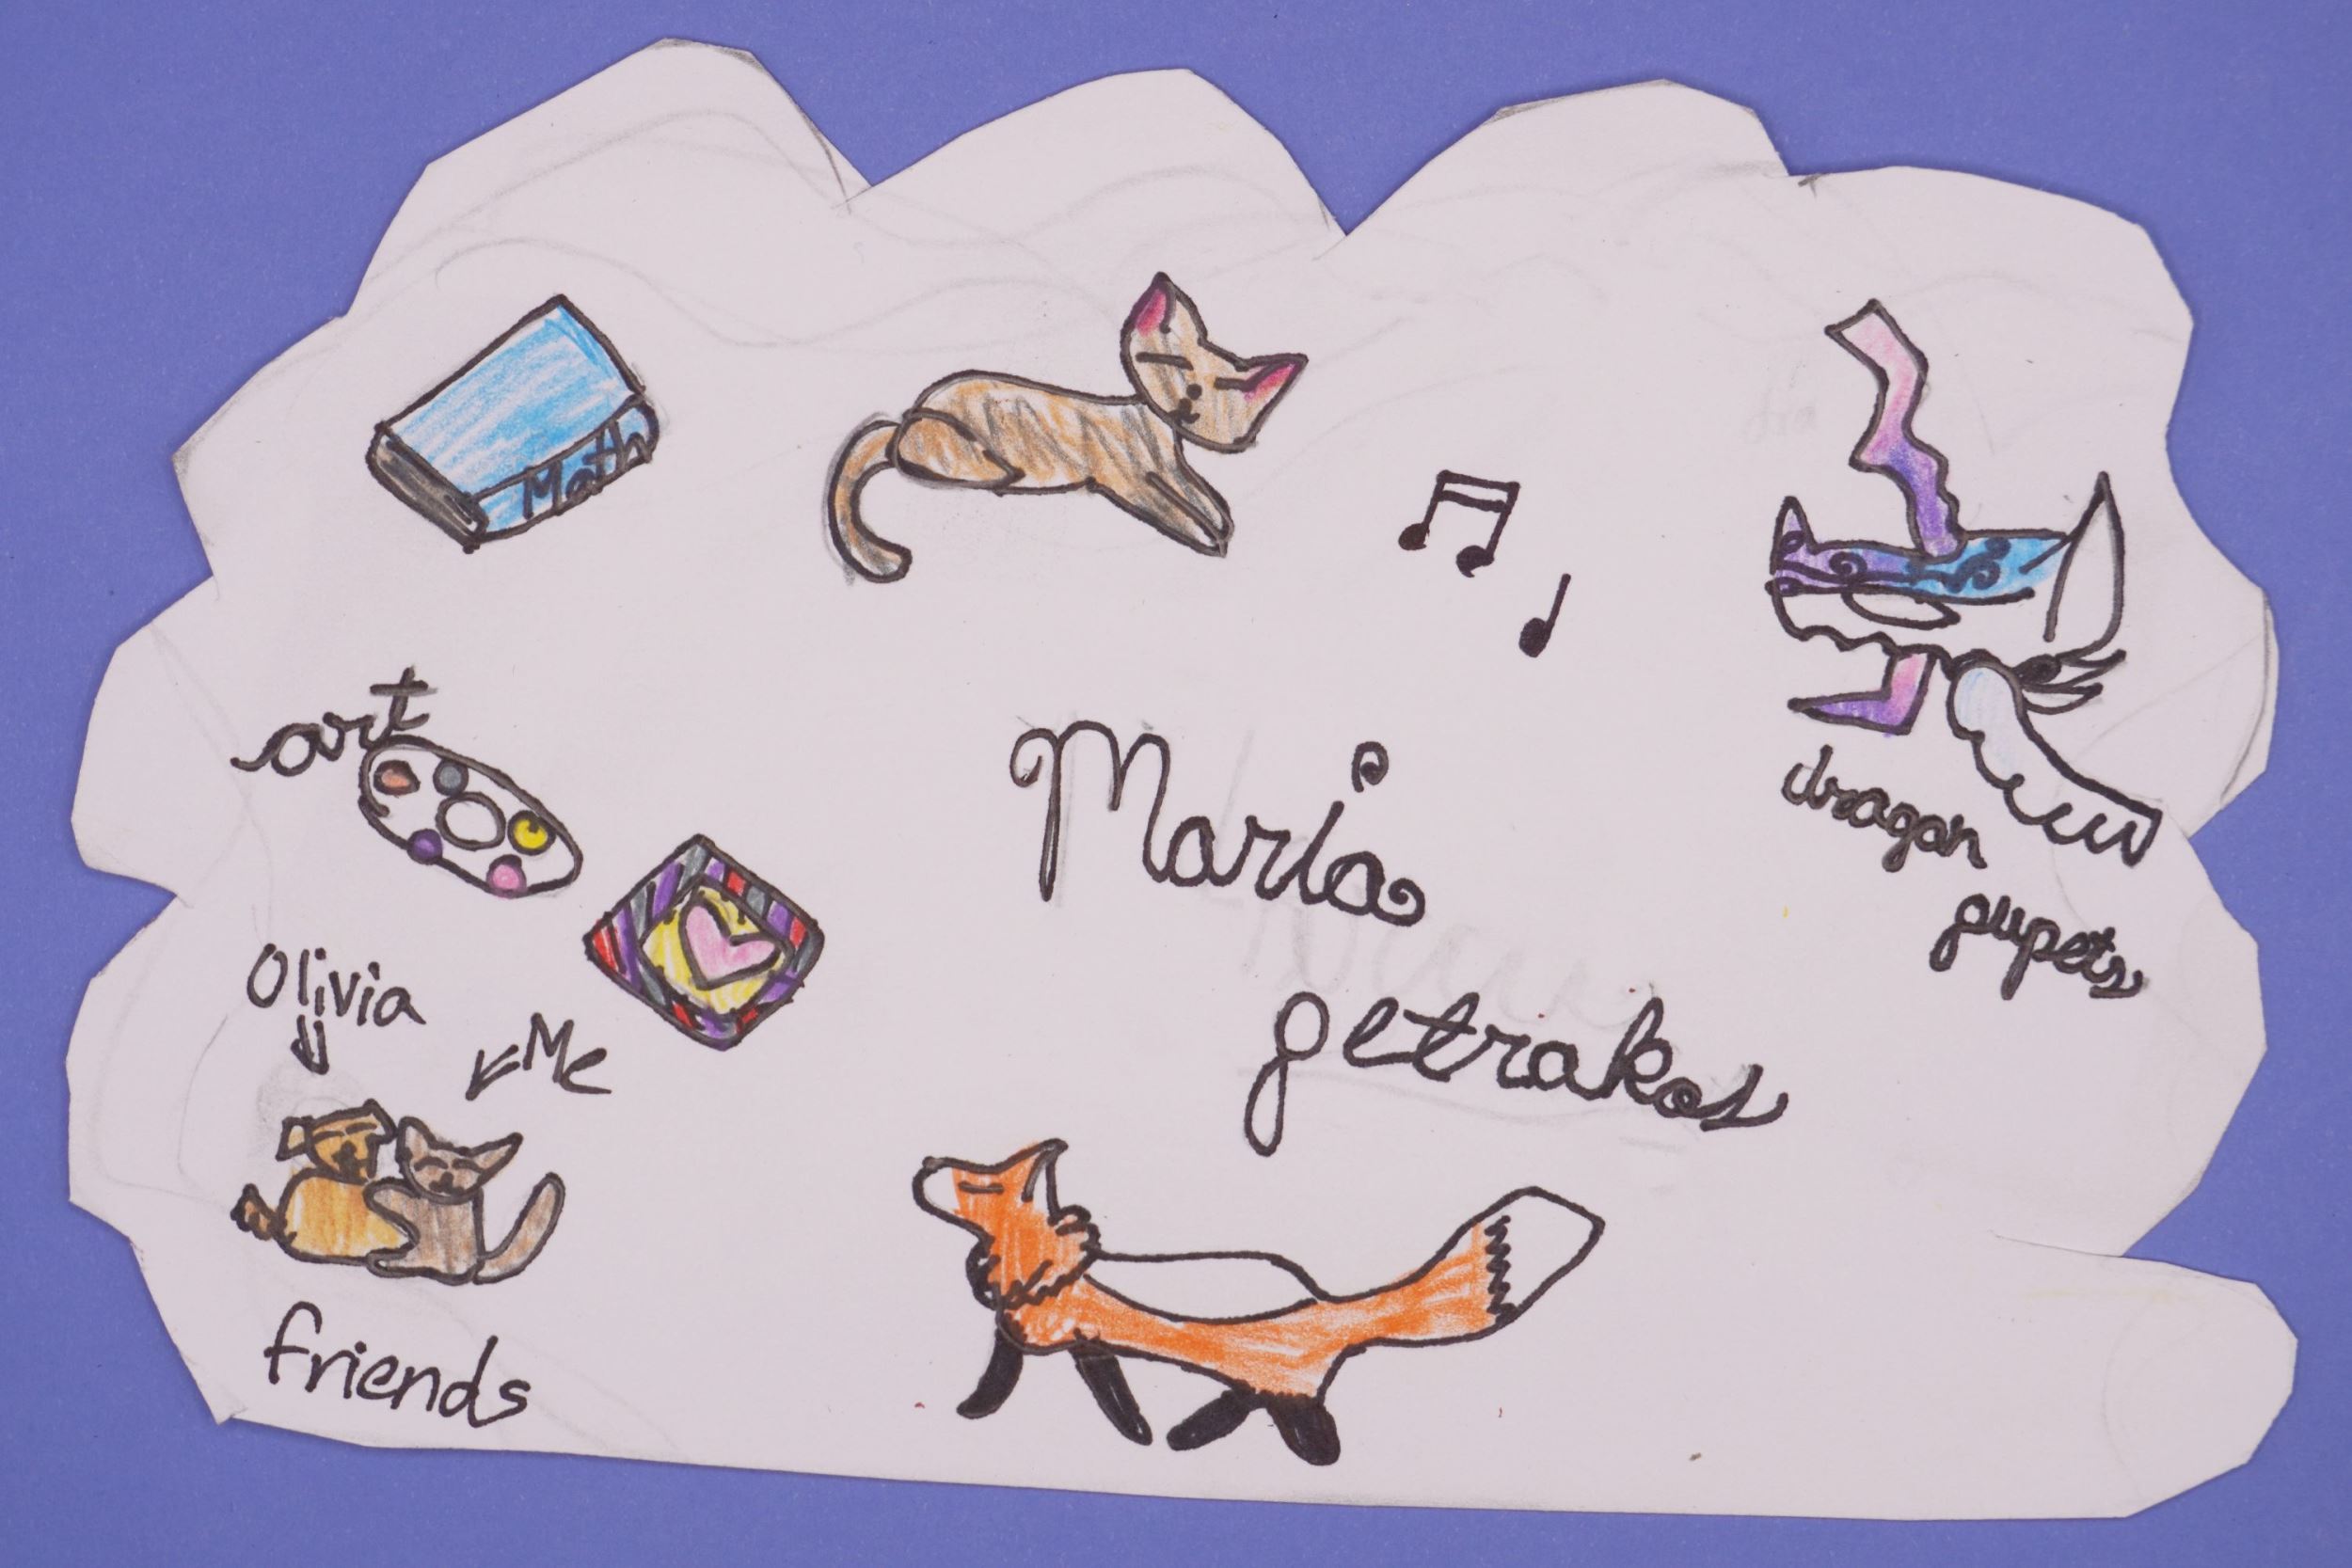 Math
art
Maria
petrakos
dragon
pupets
Olivia
Me
friends